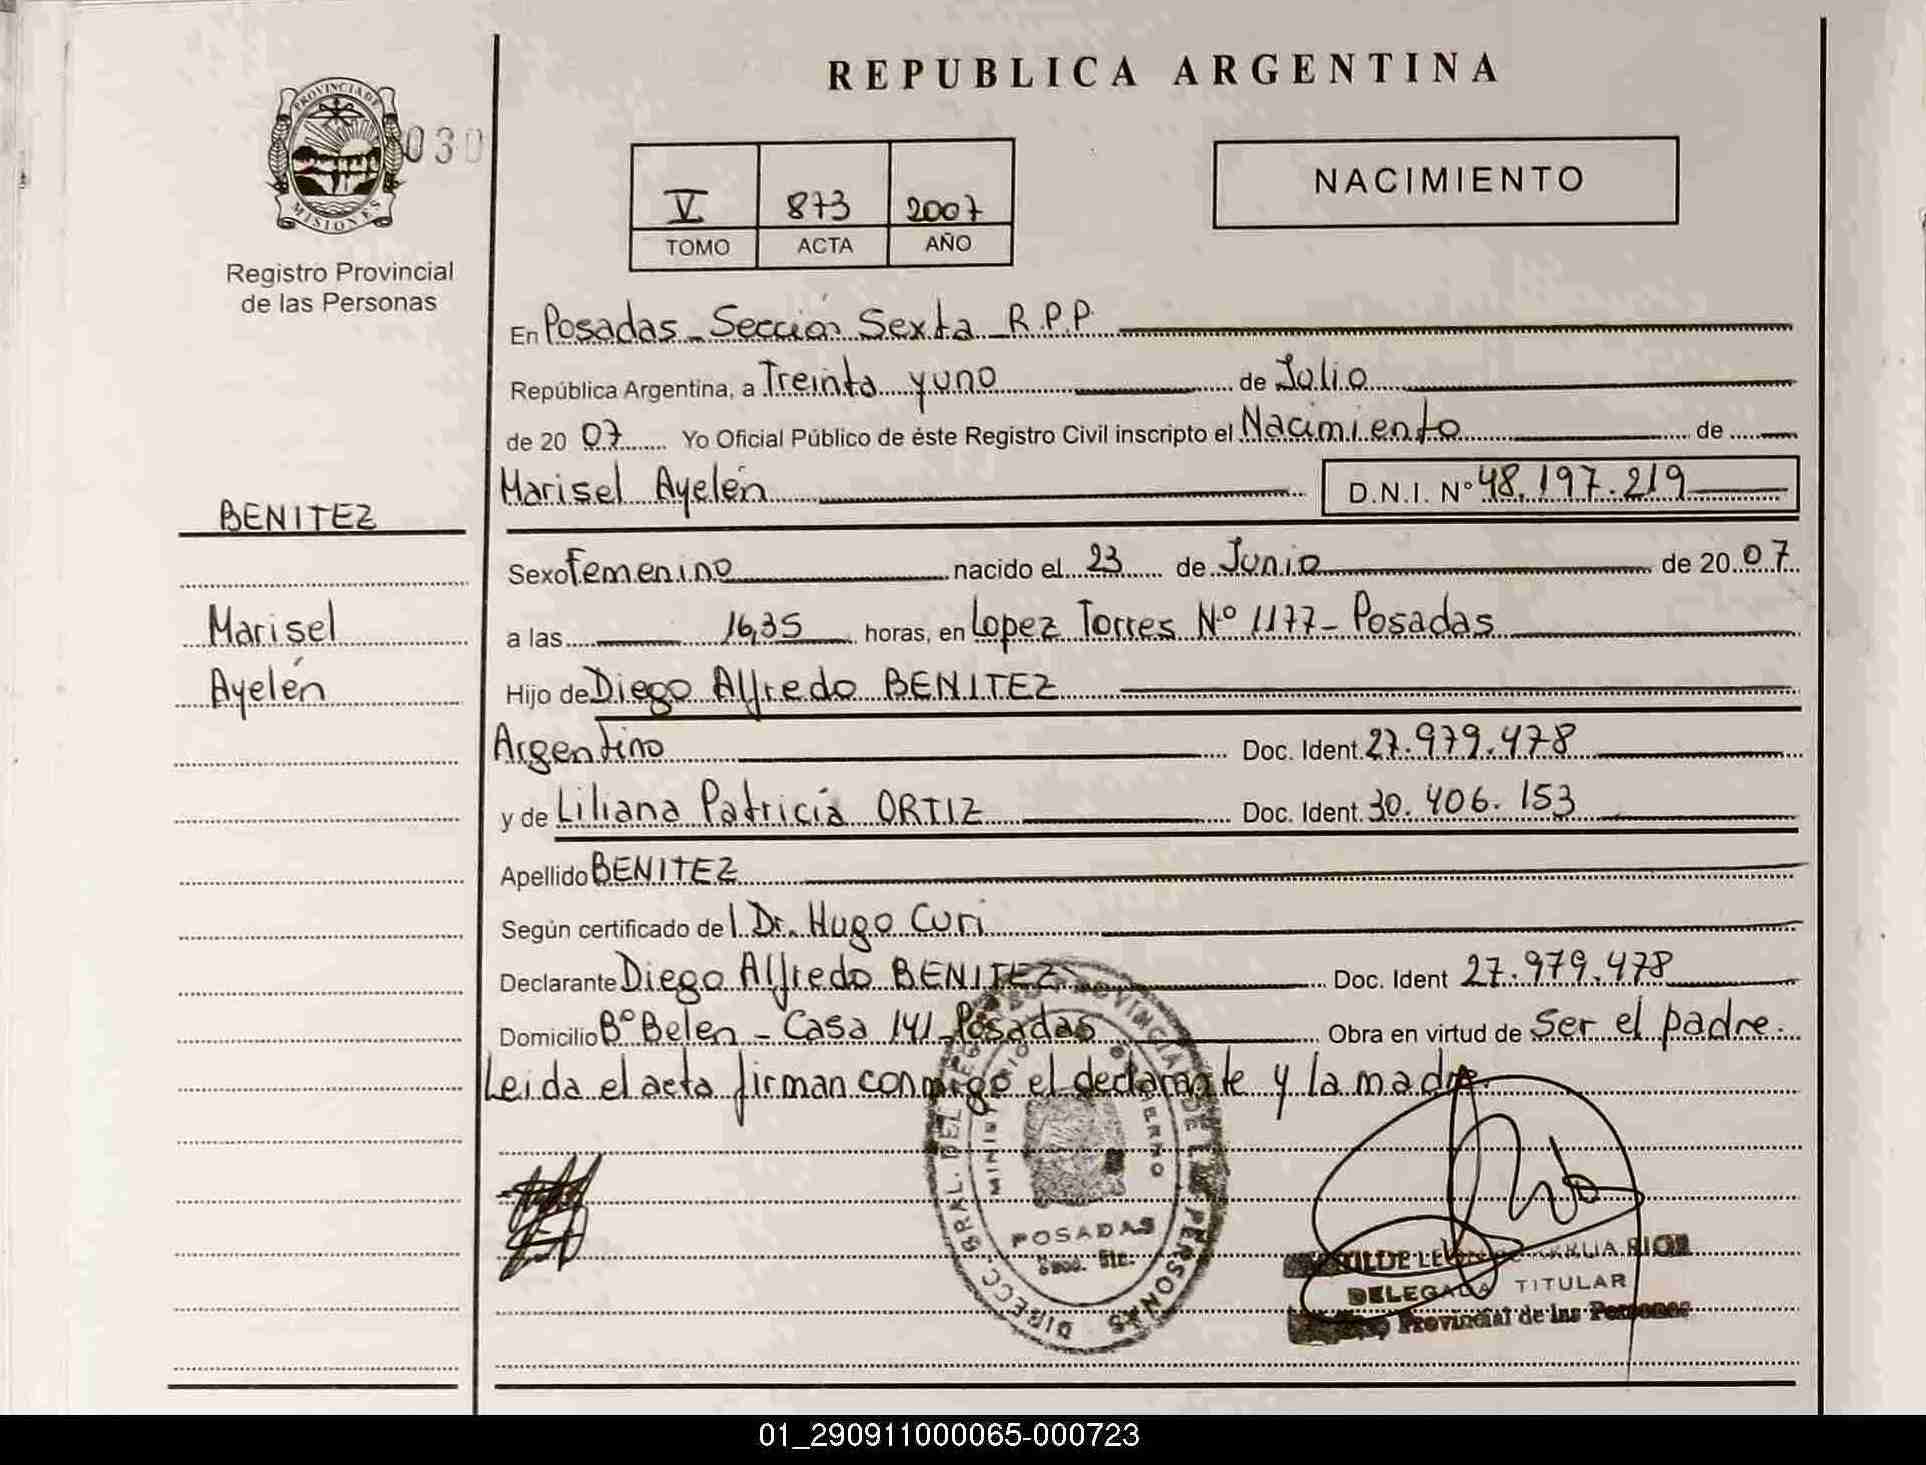 REPUBLICA ARGENTINA
PROVINCIA DE
MISIONES
030
Registro Provincial
de las Personas
V 873 2007
TOMO ACTA AÑO
NACIMIENTO
BENITEZ
Marisel
Ayelén
En Posadas - Sección Sexta R.P.P.
República Argentina, a Treinta y uno de Julio
de 20 07 Yo Oficial Público de éste Registro Civil inscripto el Nacimiento de
Marisel Ayelén D.N.I. Nº 48.197.219
Sexo Femenino nacido el 23 de Junio de 20 07
a las 16,35 horas, en Lopez Torres Nº 1177 - Posadas
Hijo de Diego Alfredo BENITEZ
Argentino Doc. Ident. 27.979.478
y de Liliana Patricia ORTIZ Doc. Ident. 30.406.153
Apellido BENITEZ
Según certificado del Dr. Hugo Curi
Declarante Diego Alfredo BENITEZ Doc. Ident 27.979.478
Domicilio Bº Belen - Casa 141 - Posadas Obra en virtud de Ser el padre.
Leida el acta firman conmigo el declarante y la madre.
POSADAS
DELEGADA TITULAR
Provincial de las Personas
01_290911000065-000723